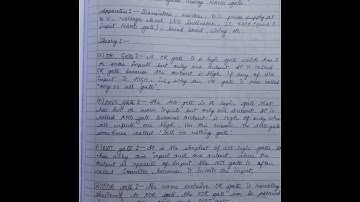 gates using NAND gate.
Apparatus :- Transistors, resistor, D.C. power supply of
5 V, voltage level LED Indicator, IC 7400 (quad 2-
input NAND gate), bread board, wiring etc.
Theory :-
OR Gate :- A OR gate is a logic gate which has 2
or more inputs but only one output. It is called
OR gate because the output is high if any of the
input is High. i.e, why an OR gate is also called
"any or all gate".
AND gate :- The AND gate is a logic gate that
has two or more inputs but only one output. It is
called AND gate because output is high if only when
all inputs are high. For this reason the AND gate
sometimes called "all or nothing gate"
NOT gate :- It is the simplest of all logic gates. It
has only one input and one output, where the
output is opposite of input. The NOT gate is often
called inverter, because it inverts the input.
XOR gate :- The name exclusive OR gate is usually
shortened to XOR gate. The XOR gate can be obtained